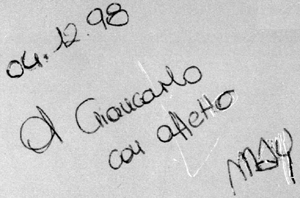 04.12.98
A Giancarlo
con affetto